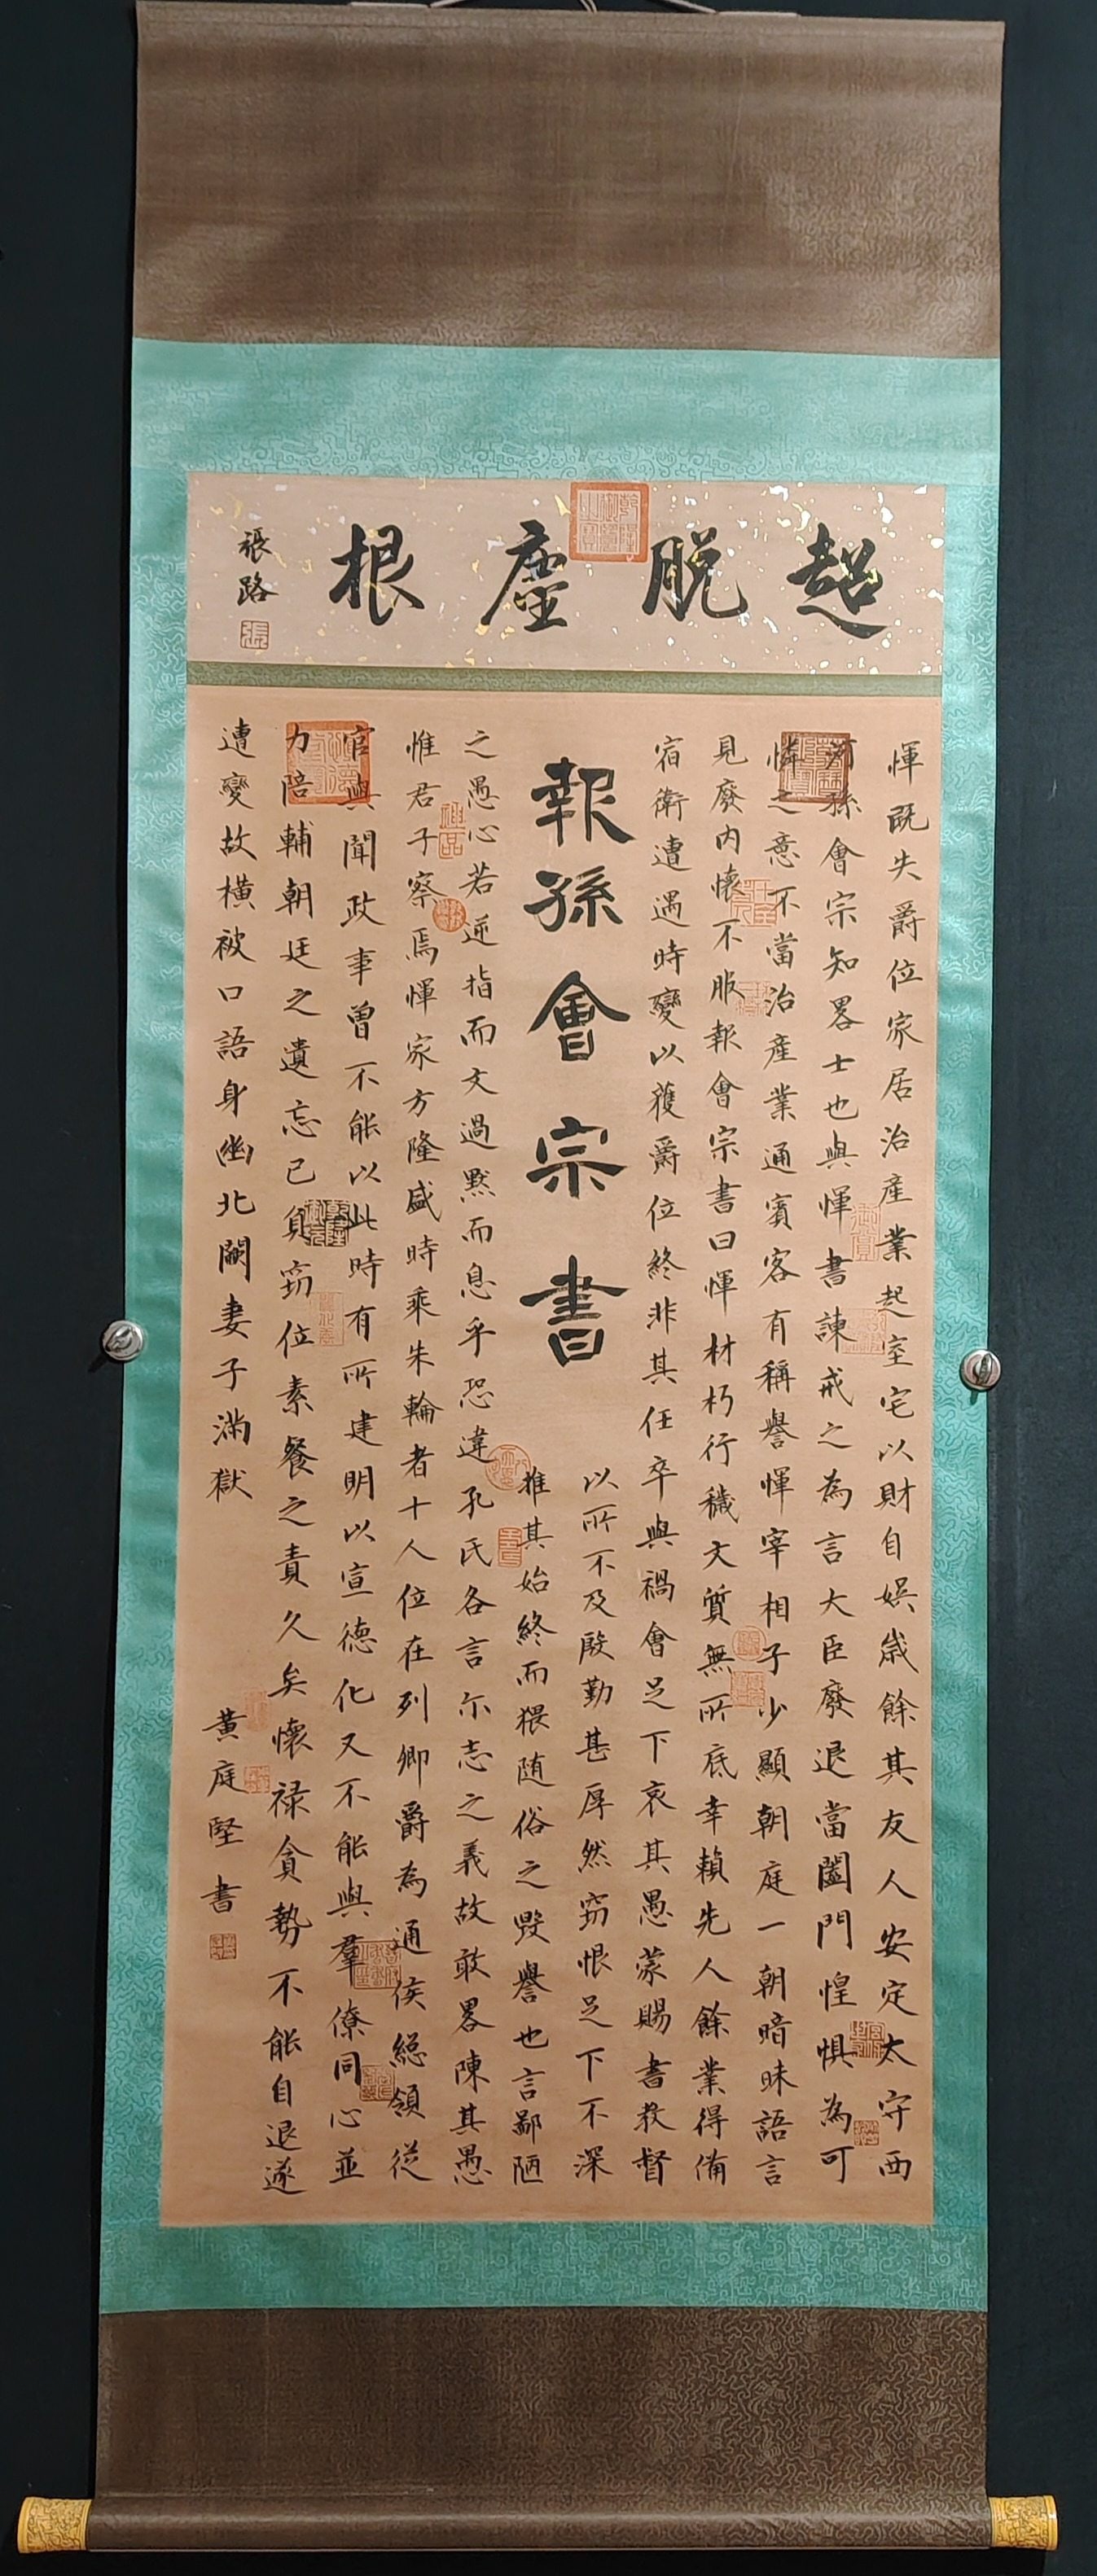 超脫塵根
張路
惲既失爵位家居治產業起室宅以財自娛歲餘其友人安定太守西
河孫會宗知畧士也與惲書諫戒之為言大臣廢退當闔門惶惧為可
憐之意不當治產業通賓客有稱譽惲宰相子少顯朝庭一朝暗昧語言
見廢内懷不服報會宗書曰惲材朽行穢文質無所底幸賴先人餘業得備
宿衛遭遇時變以獲爵位終非其任卒與禍會足下哀其愚蒙賜書教督
以所不及殷勤甚厚然竊恨足下不深
報孫會宗書
推其始終而猥随俗之毀譽也言鄙陋
之愚心若逆指而文過默而息乎恐違孔氏各言尔志之義故敢畧陳其愚
惟君子察焉惲家方隆盛時乘朱輪者十人位在列卿爵為通侯緫領従
官與聞政事曾不能以此時有所建明以宣德化又不能與羣僚同心並
力陪輔朝廷之遺忘已負竊位素餐之責久矣懷禄貪勢不能自退遂
遭變故橫被口語身幽北闕妻子滿獄
黃庭堅書